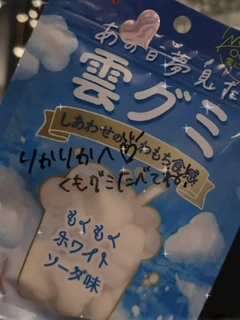 あの日夢見た
雲グミ
しあわせのふわもち食感
りかりかへ♡
くもグミたべてね!
もくもく
ホワイト
ソーダ味